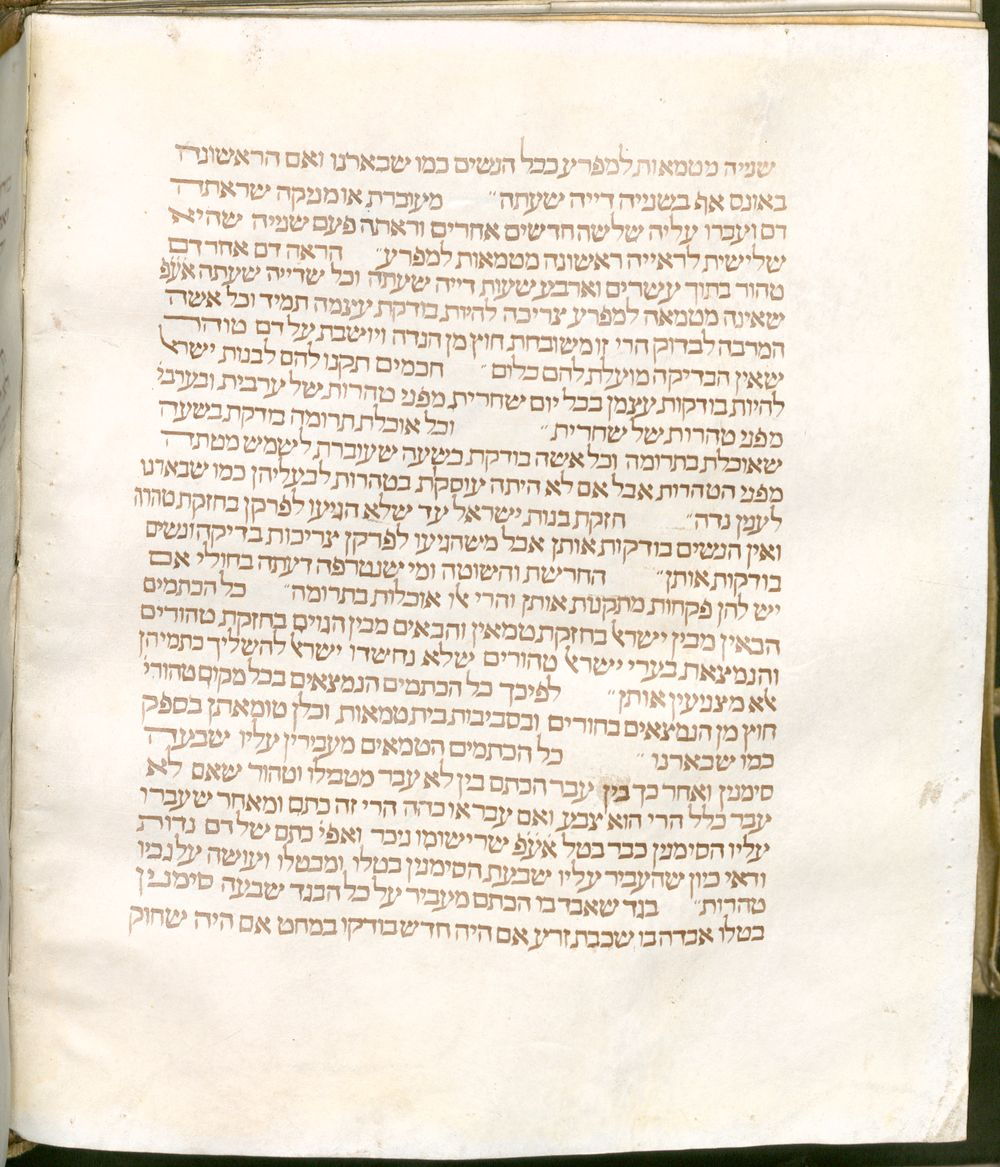 שנייה מטמאות למפרע ככל הנשים כמו שבארנו ואם הראשונה
באונס אף בשנייה דייה שעתה״ מעוברת או מניקה שראתה
דם ועברו עליה שלשה חדשים אחרים וראתה פעם שנייה שהיא
שלישית לראייה ראשונה מטמאות למפרע״ הראה דם אחר דם
טהור בתוך עשרים וארבע שעות דייה שעתה וכל שדייה שעתה אעפ
שאינה מטמאה למפרע צריכה להיות בודקת עצמה תמיד וכל אשה
המרבה לבדוק הרי זו משובחת חוץ מן הנדה ויושבת על דם טוהר
שאין הבדיקה מועלת להם כלום״ חכמים תקנו להם לבנות ישראל
להיות בודקות עצמן בכל יום שחרית מפני טהרות של ערבית ובערבי׳
מפני טהרות של שחרית״ וכל אוכלת תרומה בודקת בשעה
שאוכלת בתרומה וכל אשה בודקת בשעה שעוברת לשמש מטתה
מפני הטהרות אבל אם לא היתה עוסקת בטהרות לבעליהן כמו שבארנו
לענין נדה״ חזקת בנות ישראל עד שלא הגיעו לפרקן בחזקת טהורה
ואין הנשים בודקות אותן אבל משהגיעו לפרקן צריכות בדיקה ונשים
בודקות אותן״ החרישת והשוטה ומי שנטרפה דעתה בחולי אם
יש להן פקחות מתקנות אותן והרי אלו אוכלות בתרומה״ כל הכתמים
הבאין מבין ישראל בחזקת טמאין והבאים מבין הגוים בחזקת טהורים
והנמצאת בערי ישראל טהורים שלא נחשדו ישראל להשליך כתמיהן
לא מצניעין אותן״ לפיכך כל הכתמים הנמצאים בכל מקום טהורי׳
חוץ מן הנמצאים בחורים ובסביבות בית טמאות וכלן טומאתן בספק
כמו שבארנו״ כל הכתמים הטמאים מעבירין עליו שבעה
סימנין ואחר כך בין עבר הכתם בין לא עבר מטבילו וטהור שאם לא
עבר כלל הרי הוא צבע ואם עבר או כהה הרי זה כתם ומאחר שעברו
עליו הסימנין כבר בטל אעפ שרישומו ניכר ואפי׳ כתם של דם נדות
ודאי כיון שהעביר עליו שבעת הסימנין בטלו ומבטלו ויעושה על גביו
טהרות״ בגד שאבד בו הכתם מעביר על כל הבגד שבעה סימנין
בטלו אבדה בו שכבת זרע אם היה חדש בודקו במחט אם היה שחוק